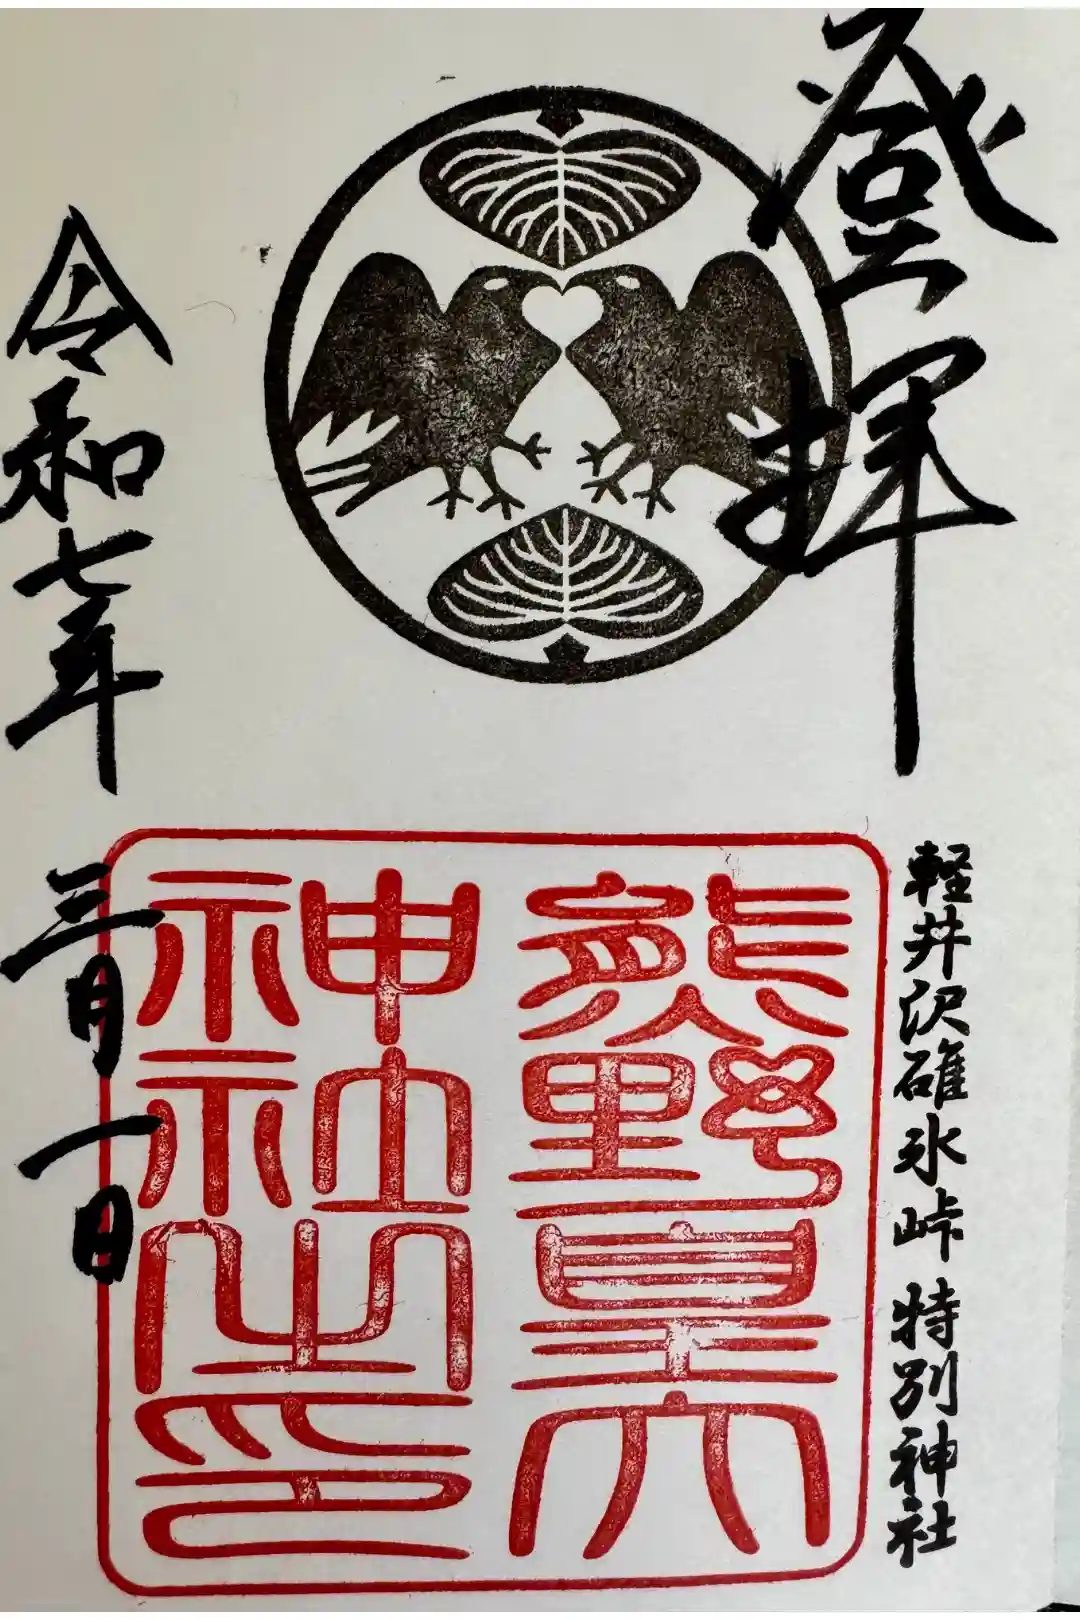 登拝
軽井沢碓氷峠 特別神社
熊野皇大
神社之印
令和七年三月一日